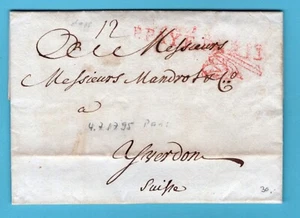 12
Messieurs
Messieurs Mandrot & Co
a
4.7.1795 Paris
Yverdon
Suisse
30.